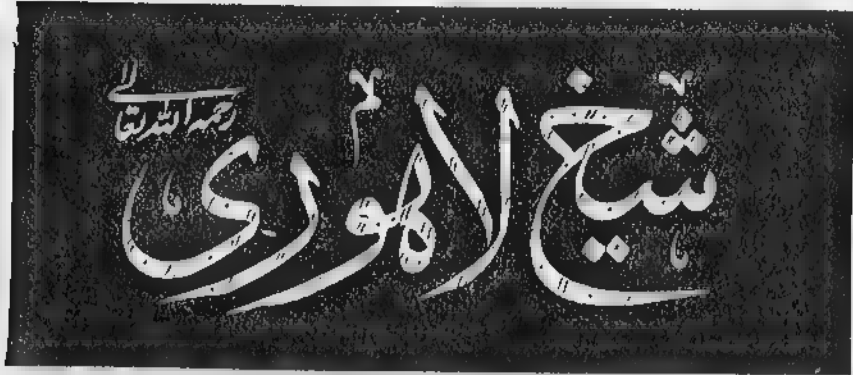 شیخ لاہوری
رحمہ اللہ تعالیٰ